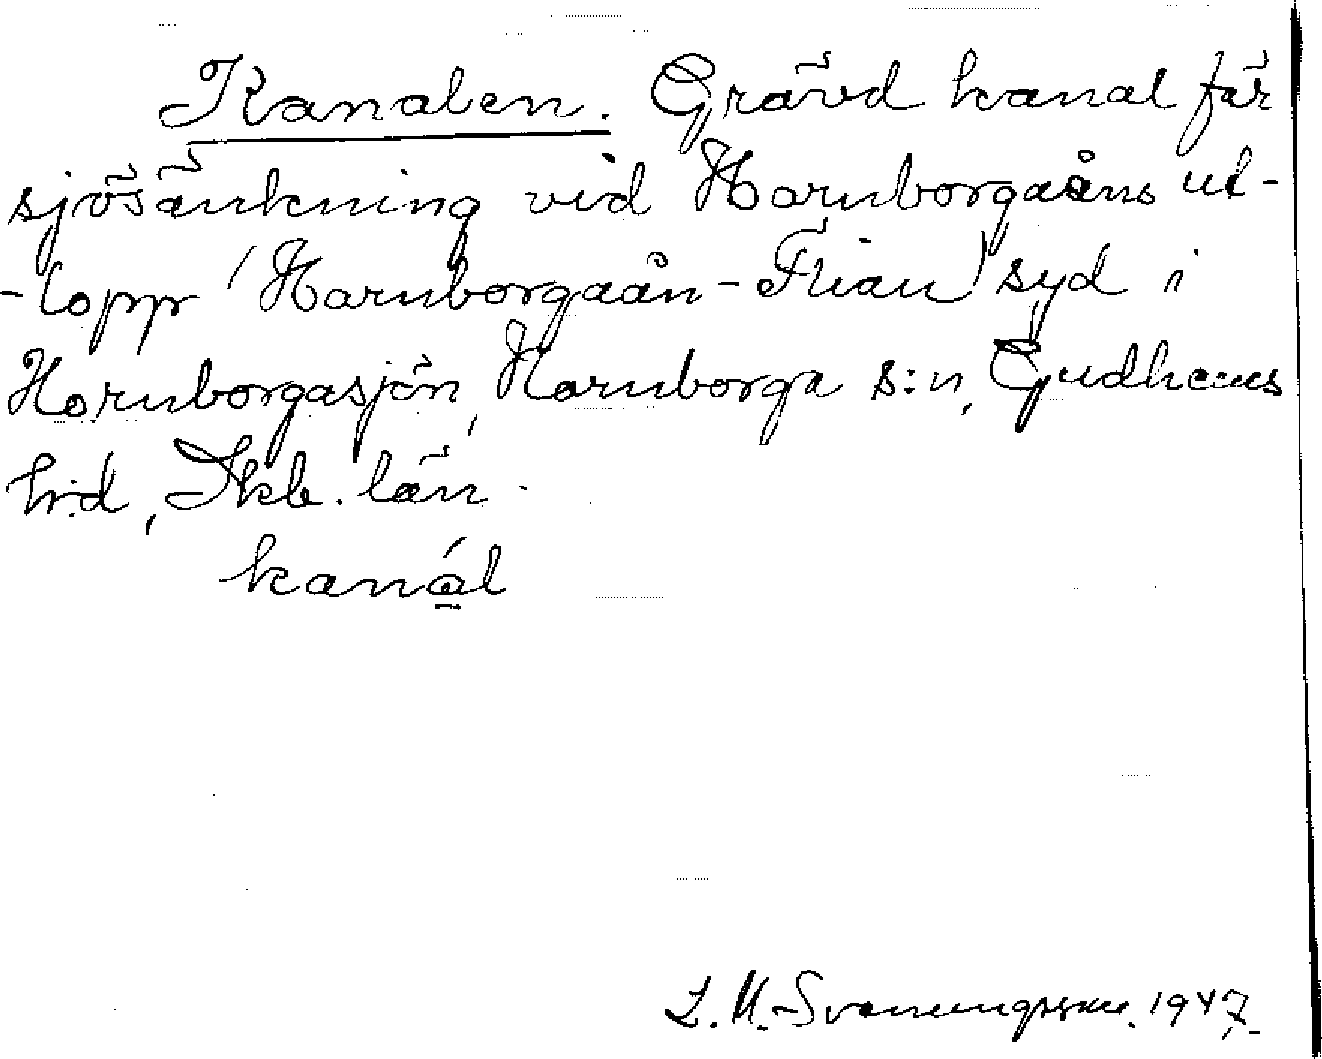 Kanalen. Grävd kanal för
sjösänkning vid Hornborgaåns ut-
-lopp (Hornborgaån-Flian) syd i
Hornborgasjön, Hornborga s:n, Gudhems
h:d, Skb. län.
kanál
L. M. Svenungsson. 1947.